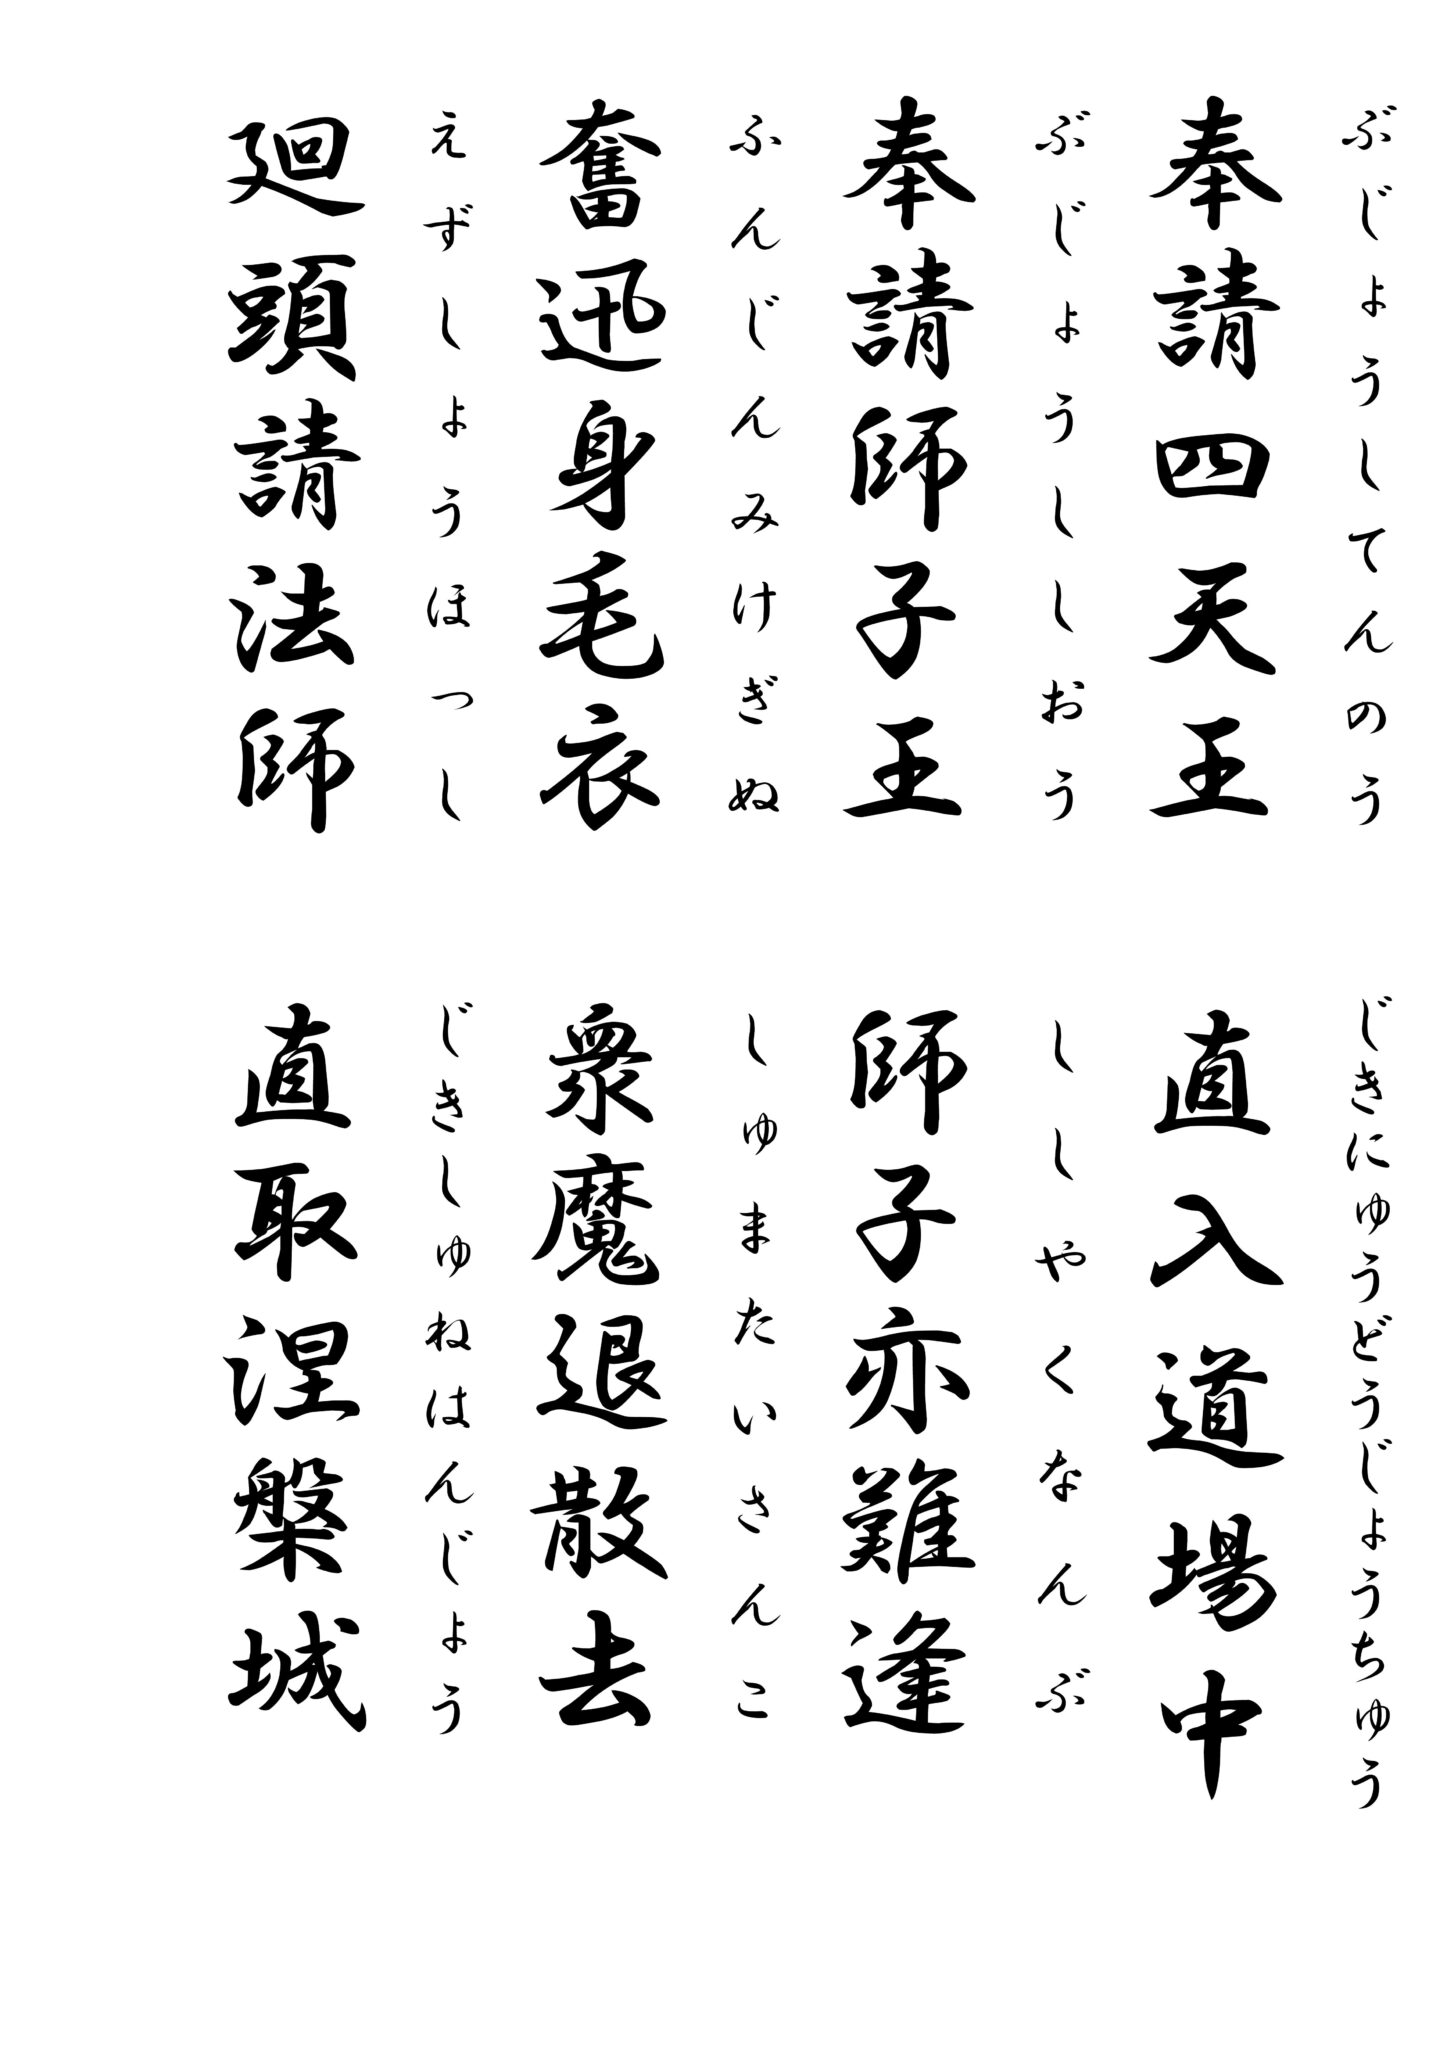 ぶじょうしてんのう
奉請四天王
じきにゅうどうじょうちゅう
直入道場中
ぶじょうししおう
奉請師子王
ししやくなんぶ
師子亦難逢
ふんじんみけぎぬ
奮迅身毛衣
しゅまたいさんこ
衆魔退散去
えずしょうほっし
廻頭請法師
じきしゅねはんじょう
直取涅槃城